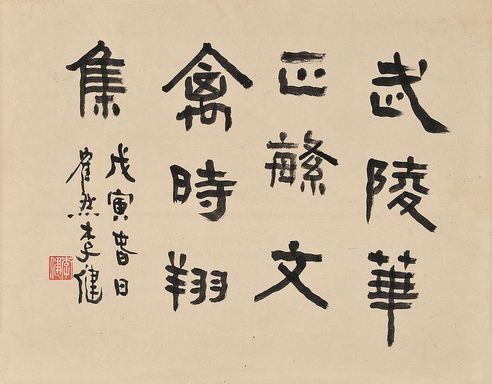 武陵華
正繁文
禽時翔
集
戊寅春日
李健